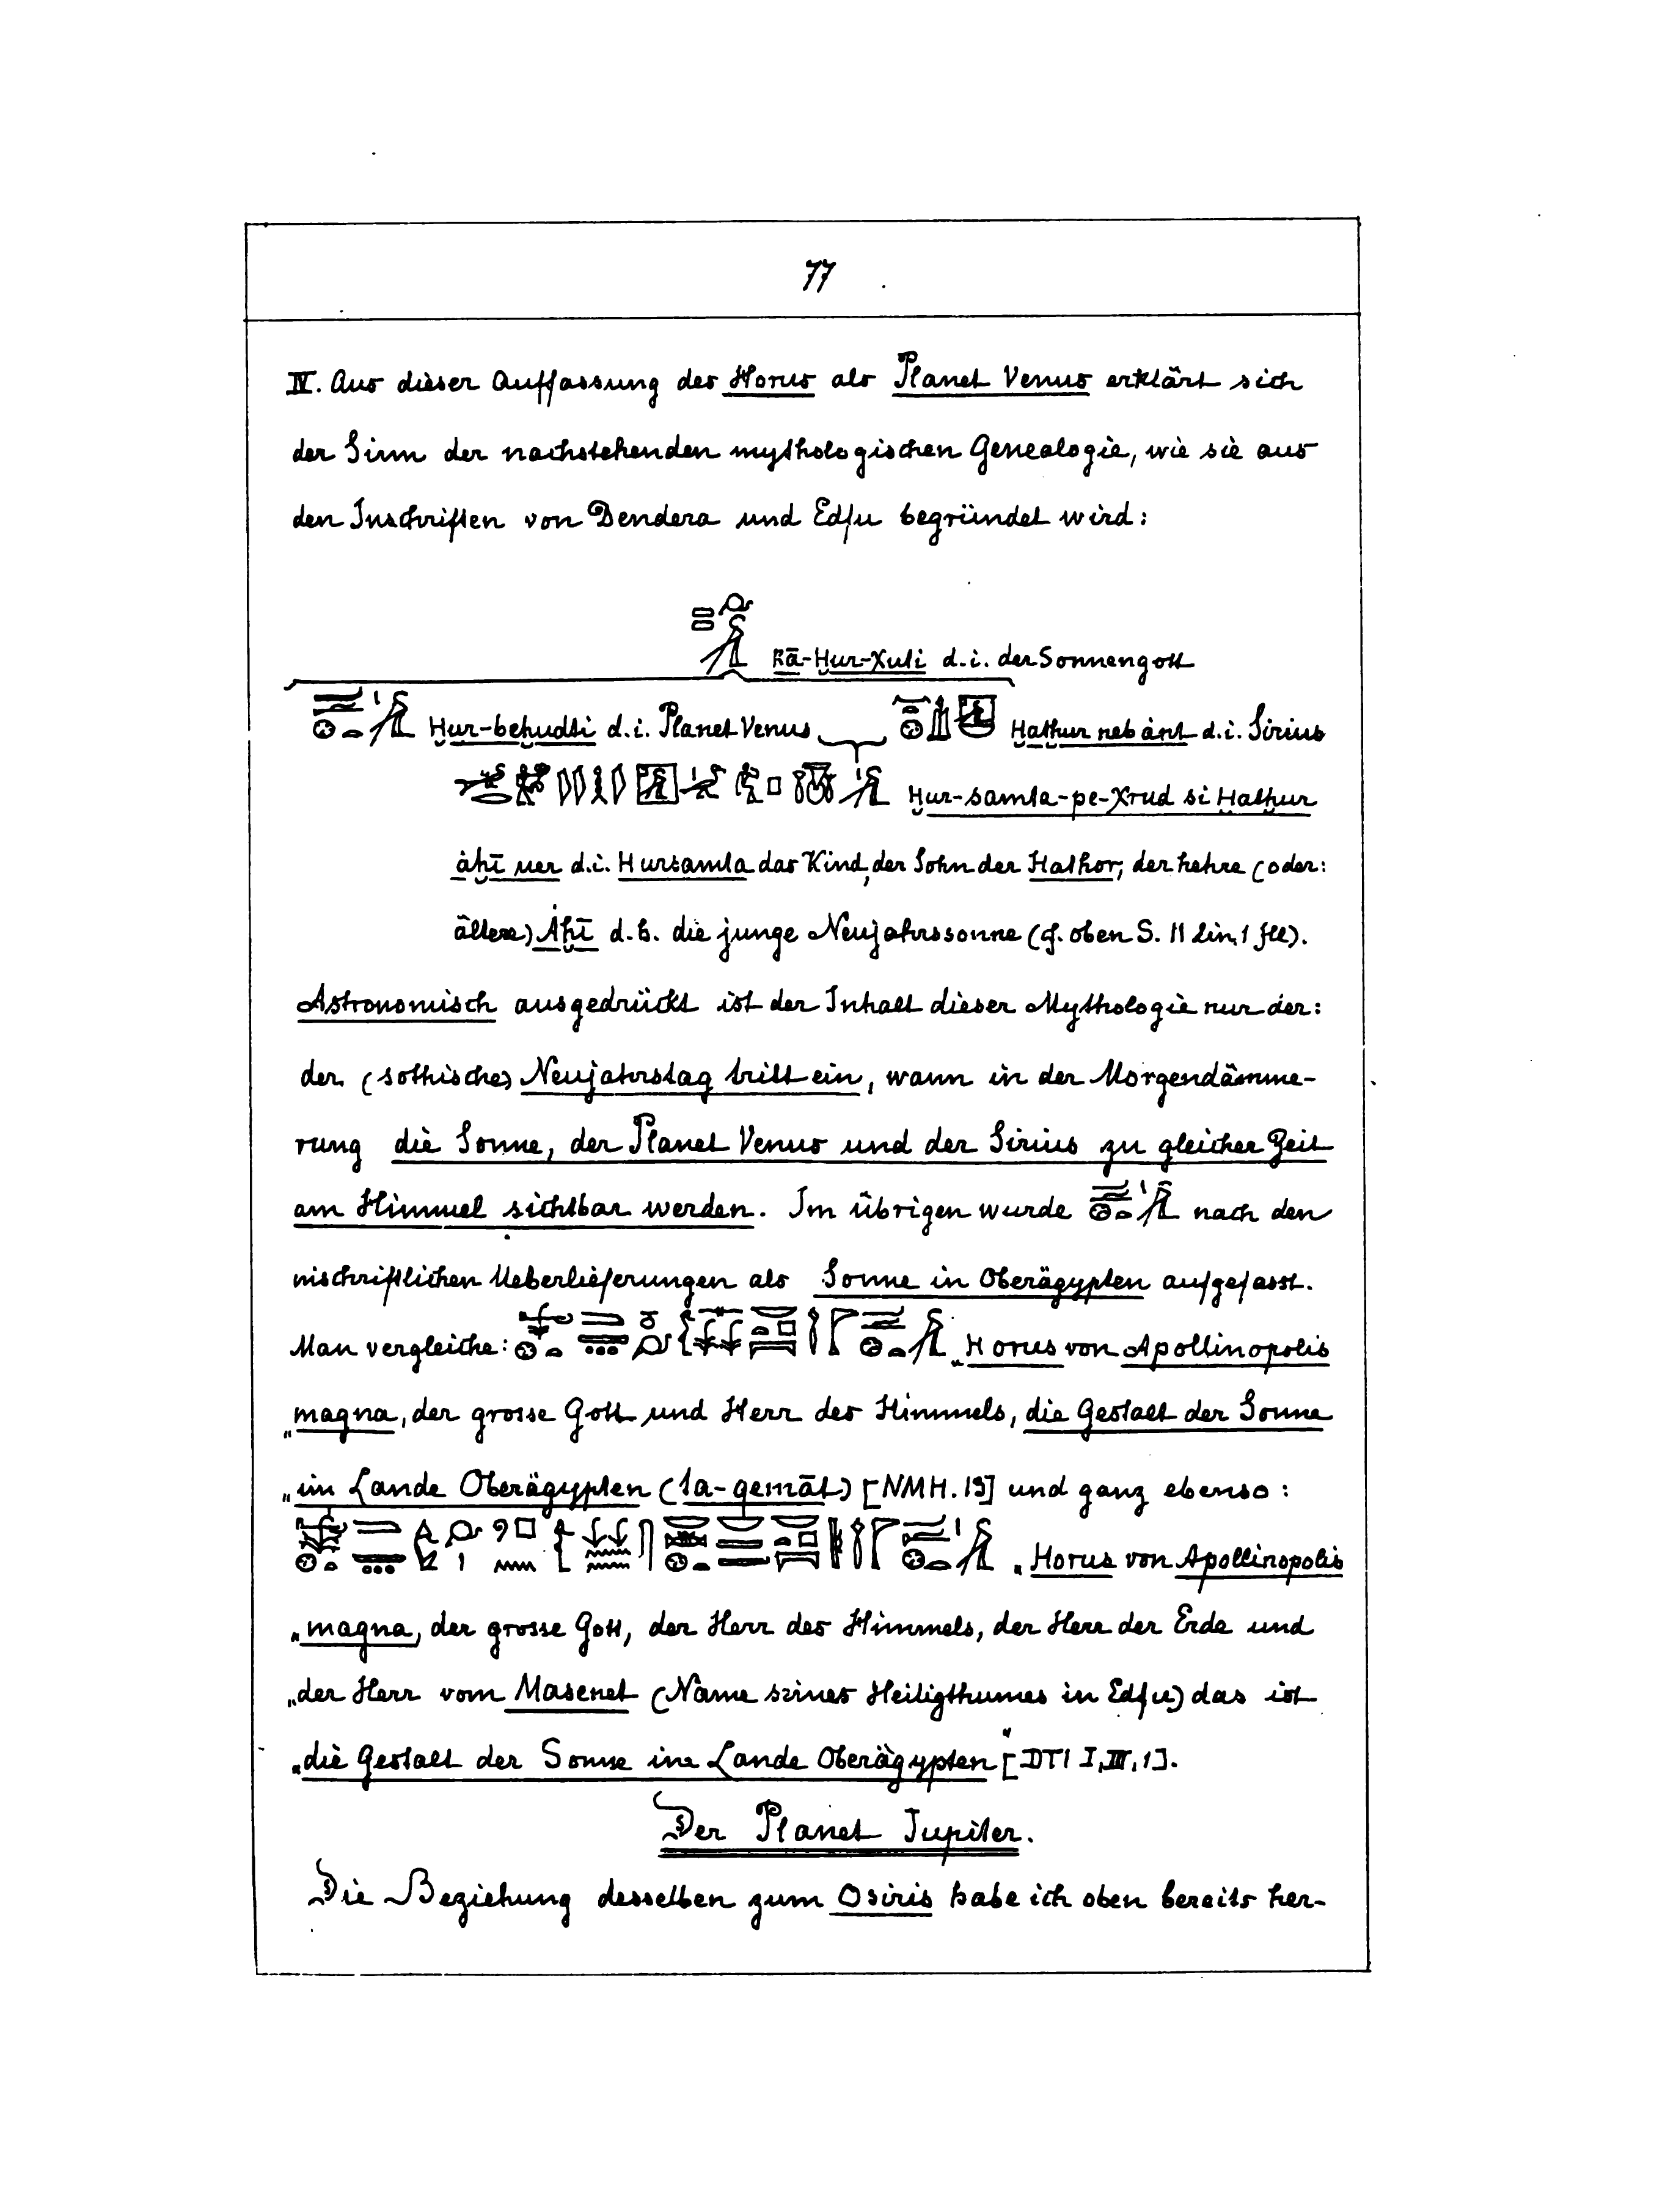 77
IV. Aus dieser Auffassung des Horus als Planet Venus erklärt sich
der Sinn der nachstehenden mythologischen Genealogie, wie sie aus
den Inschriften von Dendera und Edfu begründet wird:
Rā-Ḥur-Xuti d.i. der Sonnengott
Ḥur-beḥudti d.i. Planet Venus Ḥatḥur neb ȧnt d.i. Sirius
Ḥur-samta-pe-Xrud si Ḥatḥur
ȧḥī uer d.i. Hursamta das Kind, der Sohn der Hathor, der hehre (oder:
ältere) Ȧḥī d.h. die junge Neujahrssonne (cf. oben S. 11 lin. 1 fll).
Astronomisch ausgedrückt ist der Inhalt dieser Mythologie nur der:
der (sothische) Neujahrstag tritt ein, wann in der Morgendämme-
rung die Sonne, der Planet Venus und der Sirius zu gleicher Zeit
am Himmel sichtbar werden. Im übrigen wurde nach den
inschriftlichen Ueberlieferungen als Sonne in Oberägypten aufgefasst.
Man vergleiche: „Horus von Apollinopolis
„magna, der grosse Gott und Herr des Himmels, die Gestalt der Sonne
„im Lande Oberägypten (ta-qemāt) [NMH. 19] und ganz ebenso:
„Horus von Apollinopolis
„magna, der grosse Gott, der Herr des Himmels, der Herr der Erde und
„der Herr vom Masenet (Name seines Heiligthumes in Edfu) das ist
„die Gestalt der Sonne im Lande Oberägypten“ [DTI I, III, 1].
Der Planet Jupiter.
Die Beziehung desselben zum Osiris habe ich oben bereits her-